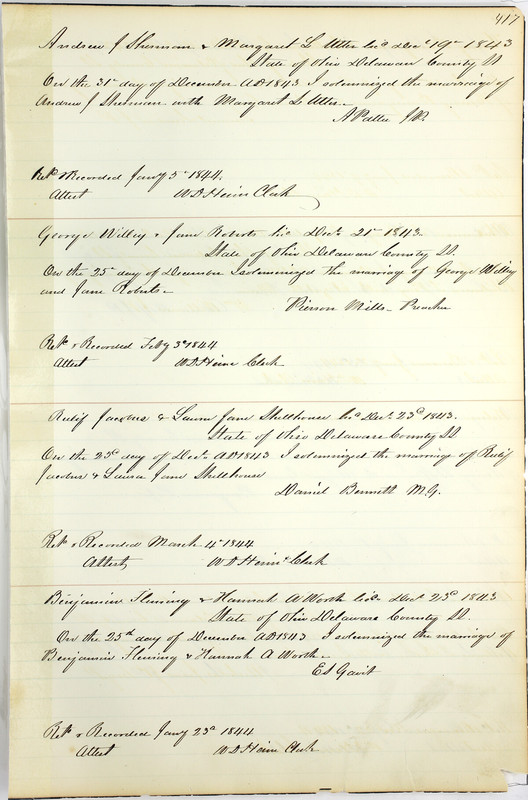 417
Andrew J Sherman & Margaret L Utter lic Decr 19th 1843
State of Ohio Delaware County SS
On the 31st day of December AD 1843 I solemnized the marriage of
Andrew J Sherman with Margaret L Utter
JP.
Retd & Recorded Jany 5th 1844.
Attest W D Heim Clerk
George Willey & Jane Roberts lic Decr 21st 1843.
State of Ohio Delaware County SS.
On the 25th day of December I solemnized the marriage of George Willey
and Jane Roberts
Pierson Mills Preacher
Retd & Recorded Feby 3d 1844
Attest W D Heim Clerk
Rulif Jacobus & Laura Jane Shellhouse lic Decr 23d 1843.
State of Ohio Delaware County SS
On the 25th day of Decr AD 1843 I solemnized the marriage of Rulif
Jacobus & Laura Jane Shellhouse
Daniel Bennett M.G.
Retd & Recorded March 4th 1844
Attest W D Heim Clerk
Benjamin Fleming & Hannah A Worth lic Decr 23d 1843
State of Ohio Delaware County SS.
On the 25th day of December AD 1843 I solemnized the marriage of
Benjamin Fleming & Hannah A Worth
E S Gavit
Retd & Recorded Jany 23d 1844
Attest W D Heim Clerk